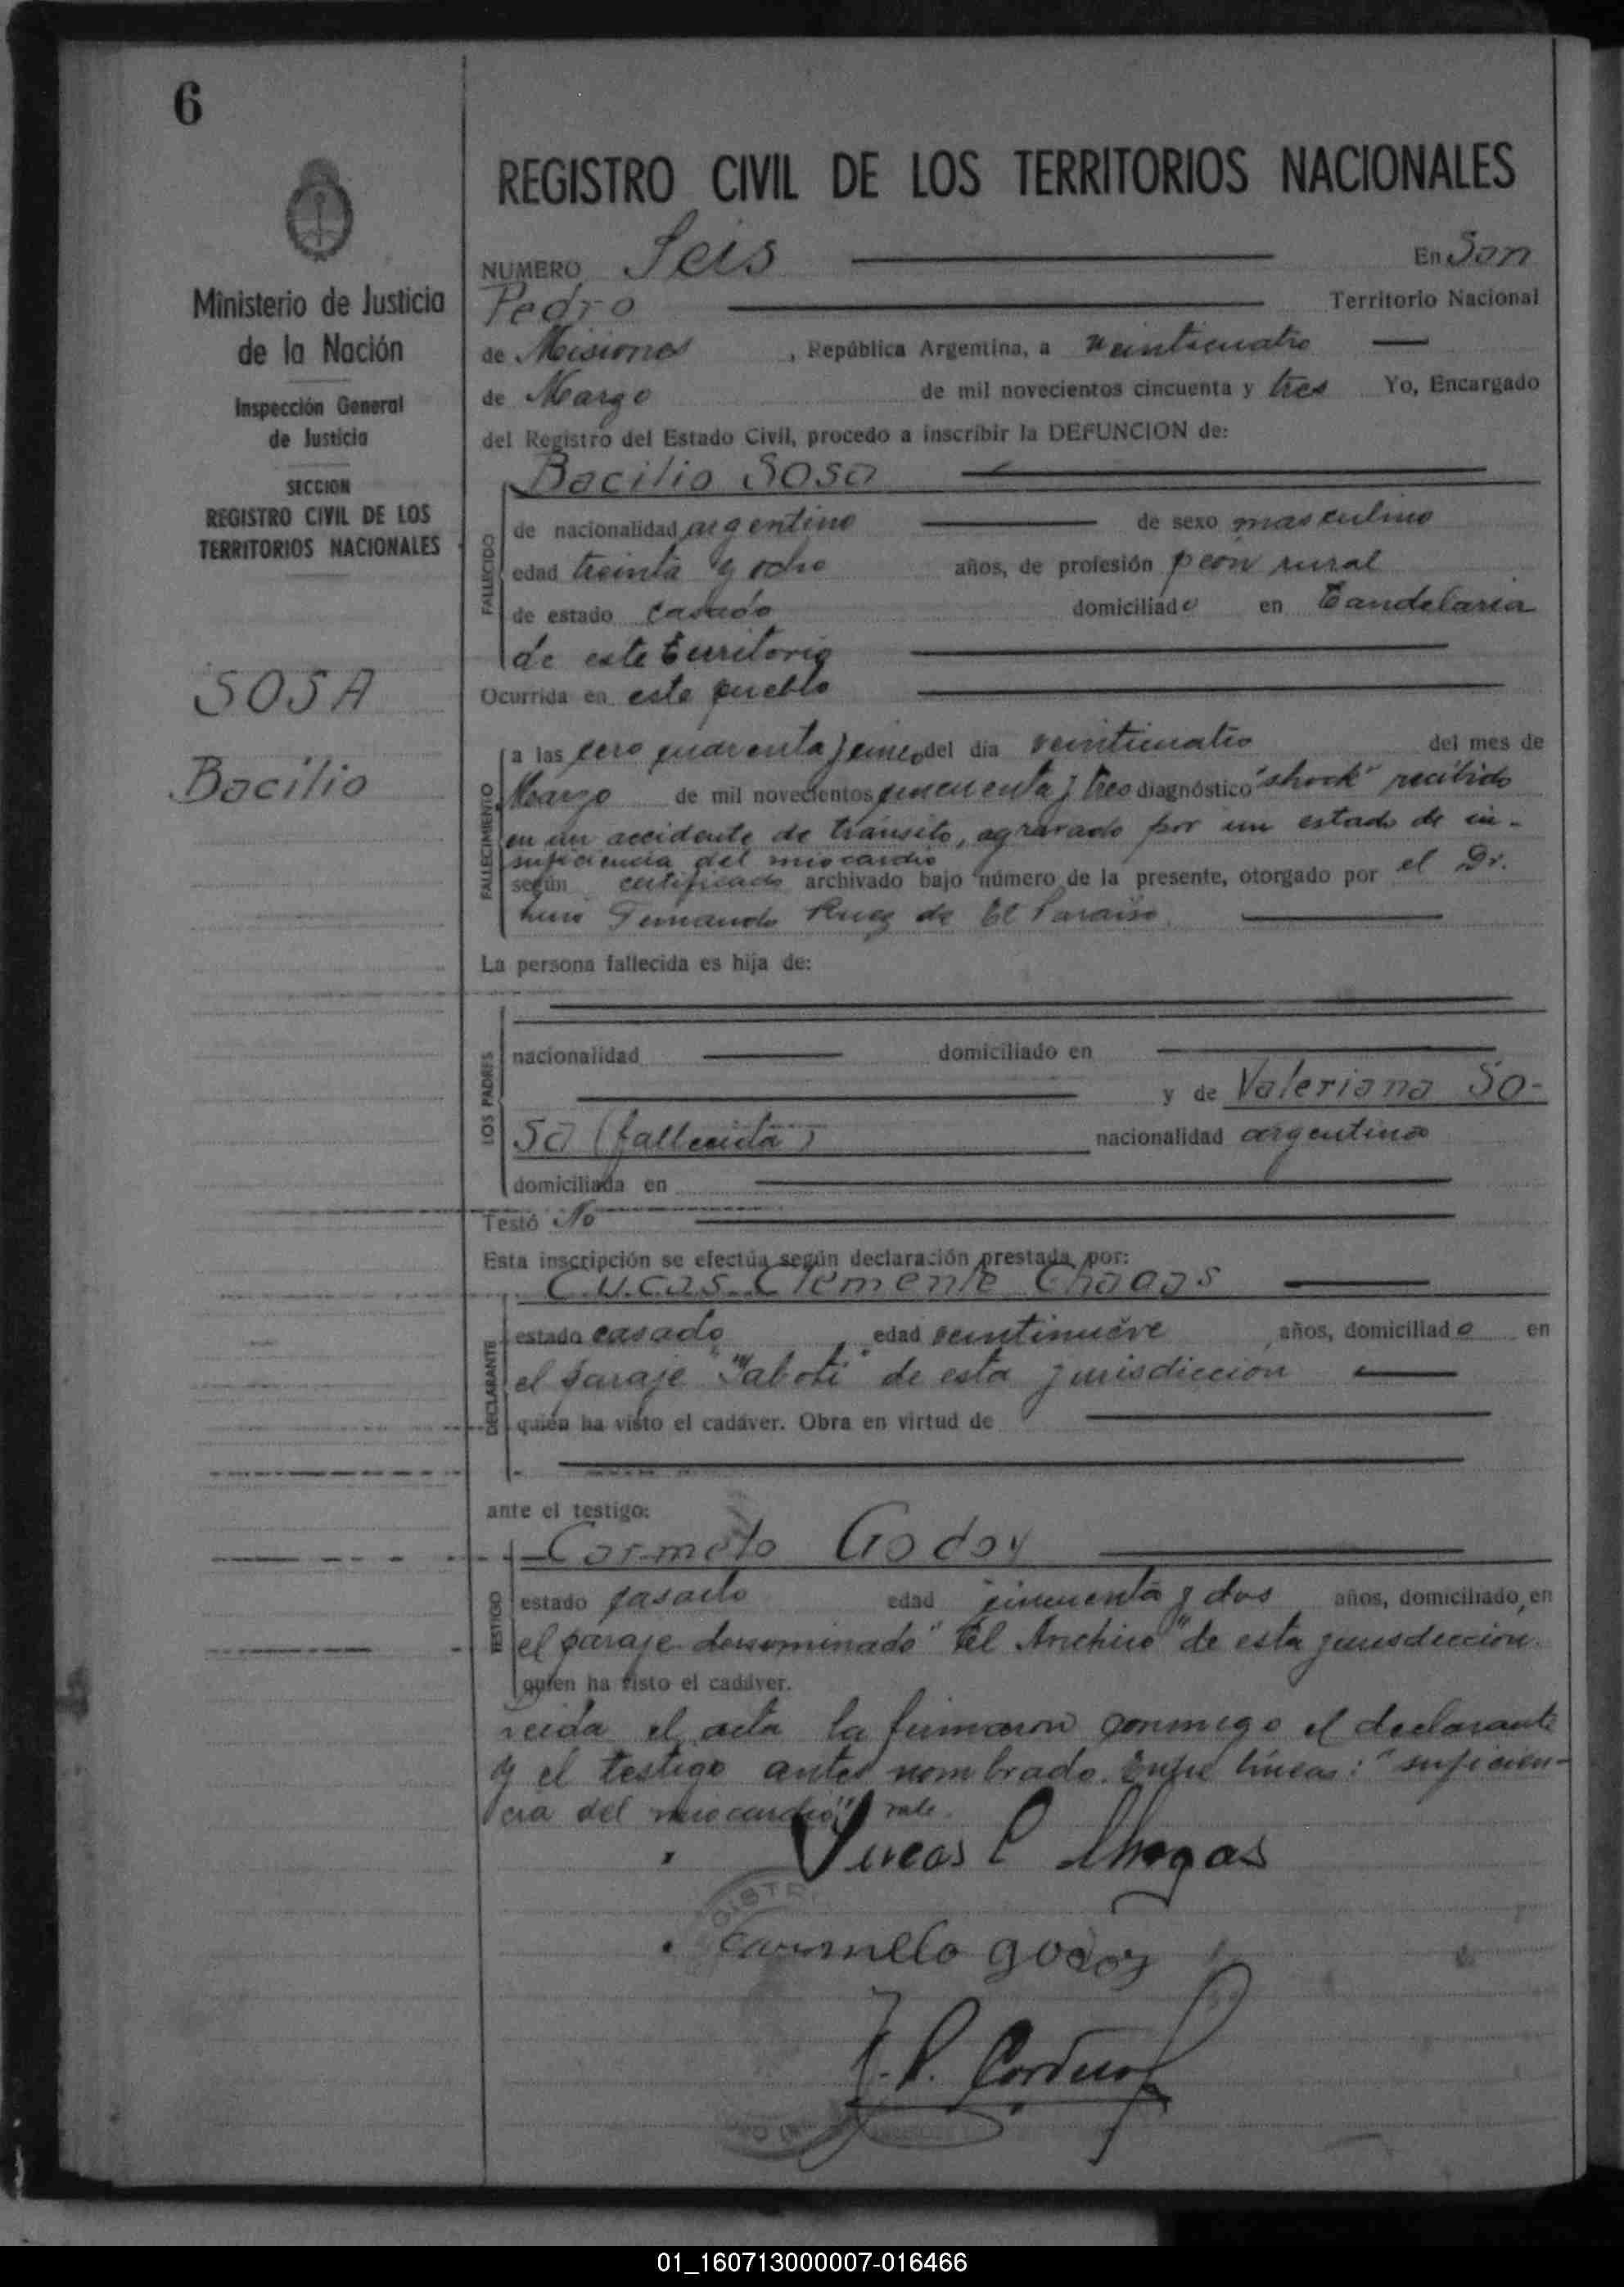 6
Ministerio de Justicia
de la Nación
Inspección General
de Justicia
SECCION
REGISTRO CIVIL DE LOS
TERRITORIOS NACIONALES
SOSA
Bacilio
REGISTRO CIVIL DE LOS TERRITORIOS NACIONALES
NUMERO Seis En San
Pedro Territorio Nacional
de Misiones , República Argentina, a veinticuatro
de Marzo de mil novecientos cincuenta y tres Yo, Encargado
del Registro del Estado Civil, procedo a inscribir la DEFUNCION de:
Bacilio Sosa
FALLECIDO
de nacionalidad argentino de sexo masculino
edad treinta y ocho años, de profesión peón rural
de estado casado domiciliado en Candelaria
de este territorio
Ocurrida en este pueblo
FALLECIMIENTO
a las cero cuarenta y cinco del día veinticuatro del mes de
Marzo de mil novecientos cincuenta y tres diagnóstico "shock" recibido
en un accidente de tránsito, agravado por un estado de in-
suficiencia del miocardio
según certificado archivado bajo número de la presente, otorgado por el Dr.
Fernando Ruiz de El Paraiso
La persona fallecida es hija de:
LOS PADRES
nacionalidad domiciliado en
y de Valeriana So-
sa (fallecida) nacionalidad argentina
domiciliada en
Testó No
Esta inscripción se efectúa según declaración prestada por:
Lucas Clemente Chagas
DECLARANTE
estado casado edad veintinueve años, domiciliado en
el paraje "Yabotí" de esta jurisdicción
quien ha visto el cadáver. Obra en virtud de
ante el testigo:
Carmelo Godoy
TESTIGO
estado casado edad cincuenta y dos años, domiciliado en
el paraje denominado "El" de esta jurisdicción
quien ha visto el cadáver.
Leida el acta la firmaron conmigo el declarante
y el testigo antes nombrado. Entre líneas: "suficien-
cia del miocardio" vale.
Lucas C Chagas
Carmelo godoy
01_160713000007-016466